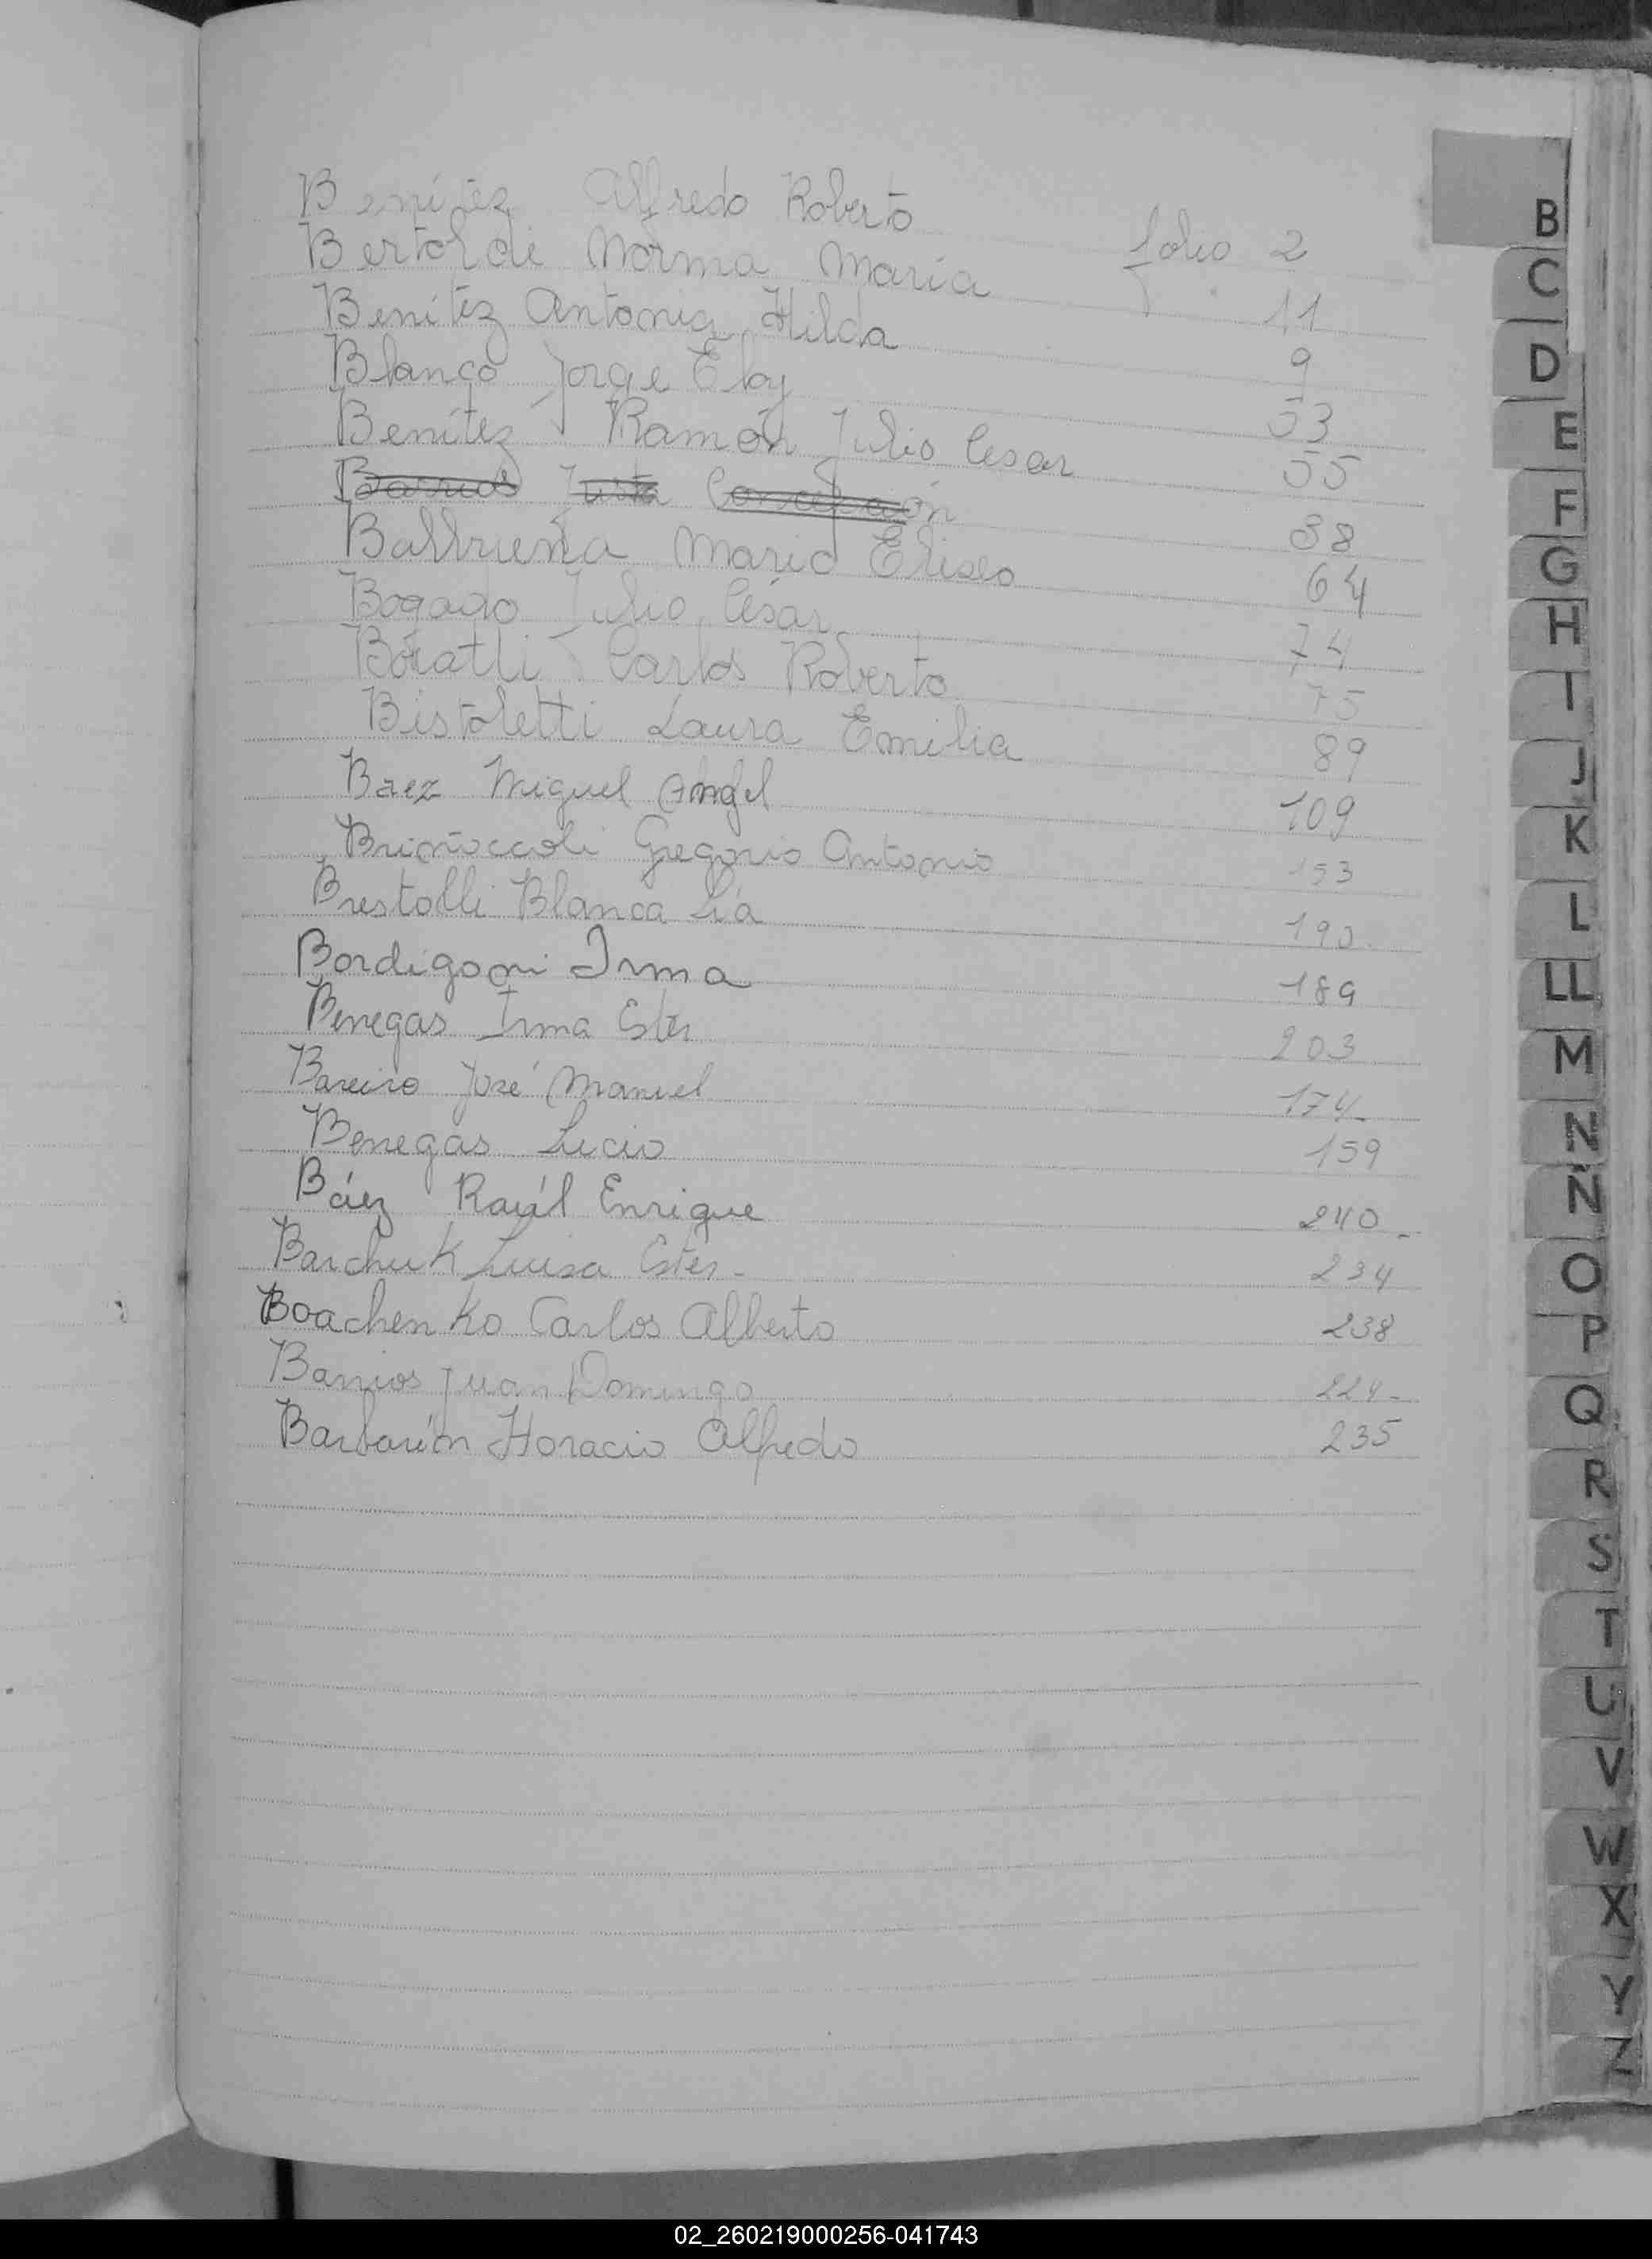 Benítez Alfredo Roberto folio 2
Bertoldi Norma Maria 11
Benítez Antonia Hilda 9
Blanco Jorge Eloy 53
Benítez Ramón Julio Cesar 55
Barrios Justa Concepción 38
Balbuena Mario Eliseo 64
Bogado Julio César 74
Carlos Roberto 75
Bistoletti Laura Emilia 89
Baez Miguel Angel 109
Gregorio Antonio 153
Blanca Lía 190
Bordigoni Irma 189
Benegas Irma Ester 203
Bareiro José Manuel 174
Benegas Lucio 159
Báez Raúl Enrique 240
Barchuk Luisa Ester 234
Boachenko Carlos Alberto 238
Barrios Juan Domingo 224
Horacio Alfredo 235
B
C
D
E
F
G
H
I
J
K
L
LL
M
N
Ñ
O
P
Q
R
S
T
U
V
W
X
Y
Z
02_260219000256-041743